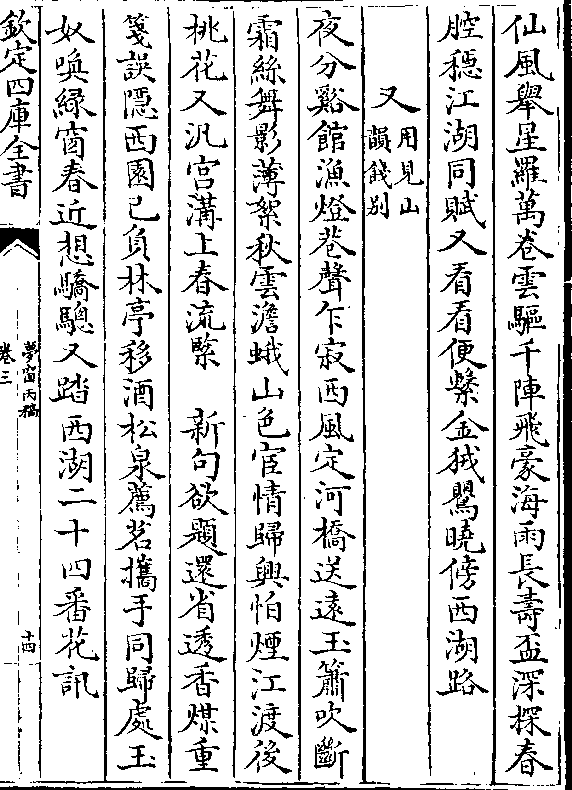 仙風舉星羅萬卷雲驅千陣飛豪海雨長壽盃深探春
腔穩江湖同賦又看看便繫金狨鶯曉傍西湖路
又用見山韻餞别
夜分谿館漁燈巷聲乍寂西風定河橋送遠玉簫吹斷
霜絲舞影薄絮秋雲澹蛾山色宦情歸興怕煙江渡後
桃花又汎宫溝上春流緊　新句欲題還省透香煤重
箋誤隠西園已負林亭移酒松泉薦茗攜手同歸處玉
奴喚緑窗春近想驕驄又踏西湖二十四番花訊
欽定四庫全書
夢窗丙稿
卷三
十四